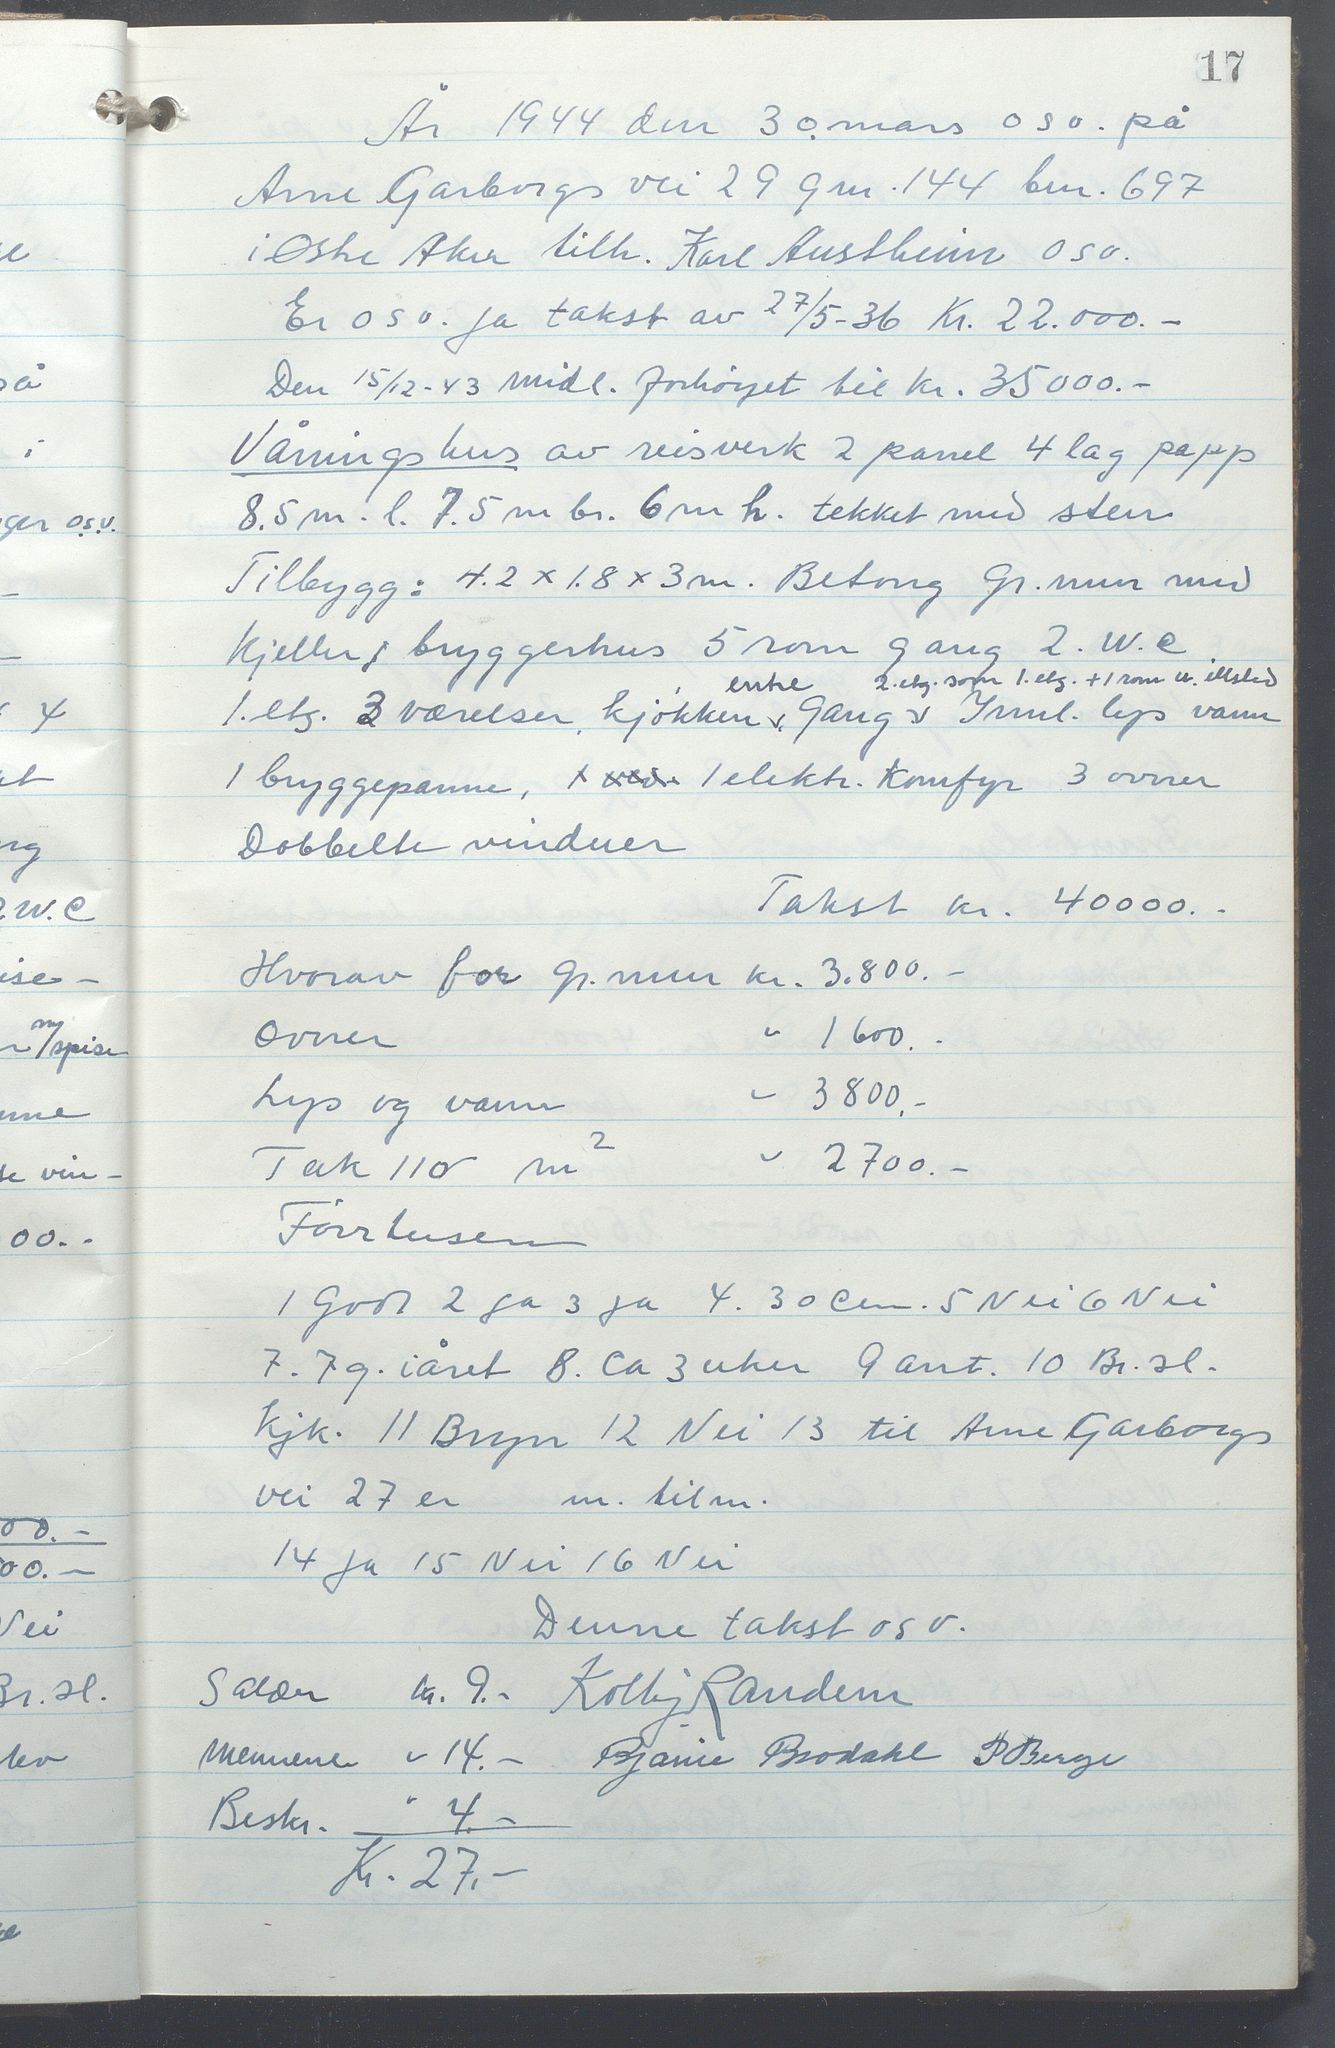 17
År 1944 den 30. mars osv. på
Arne Garborgs vei 29 gnr. 144 bnr. 697
i Østre Aker tilh. Karl Austheim osv.
Er osv. ja takst av 27/5-36 Kr. 22.000.-
Den 15/12-43 midl. forhöyet til kr. 35000.-
Våningshus av reisverk 2 panel 4 lag papp
8.5 m. l. 7.5 m br. 6 m h. tekket med sten
Tilbygg: 4.2 x 1.8 x 3 m. Betong Gr. mur med
Kjeller; bryggerhus 5 rom gang 2. W.C
entre 2. etg. som 1. etg. + 1 rom u. illsted
1. etg. 3 værelser, kjökken, Gang Innl. lys vann
1 bryggepanne, 1 elektr. Komfyr 3 ovner
Dobbelte vinduer
Takst kr. 40000.-
Hvorav for gr. mur kr. 3.800.-
Ovner " 1600.-
Lys og vann " 3800.-
Tak 110 m2 " 2700.-
Förrhusen
1 Godt 2 ja 3 ja 4. 30 Cem. 5 Nei 6 Nei
7. 7 g. i året 8. Ca 3 uker 9 ant. 10 Br. sl.
Kjk. 11 Bryn 12 Nei 13 til Arne Garborgs
vei 27 er m. til m.
14 ja 15 Nei 16 Nei
Denne takst osv.
Salær kr. 9.- Kolbj Randem
Mennene " 14.- Bjarne Brodahl P Berge
Beskr. " 4.-
Kr. 27.-
på
i
ger osv.
4
ng
2. W.C
ise-
ny/spise
nne
se vin-
00.-
00.-
00.-
Nei
Br. sl.